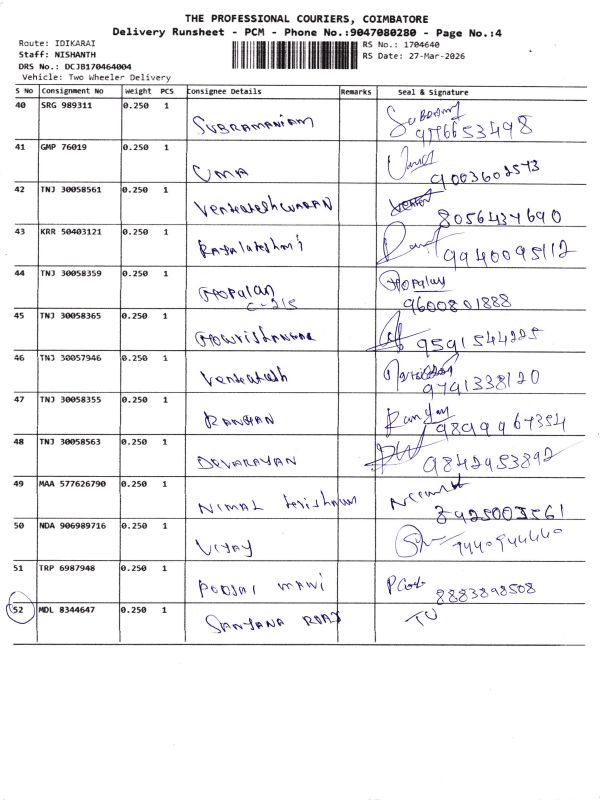 THE PROFESSIONAL COURIERS, COIMBATORE
Delivery Runsheet - PCM - Phone No.:9047080280 - Page No.:4
Route: IDIKARAI
RS No.: 1704640
Staff: NISHANTH
RS Date: 27-Mar-2026
DRS No.: DCJB170464004
Vehicle: Two Wheeler Delivery
S No Consignment No Weight PCS Consignee Details Remarks Seal & Signature
40 SRG 989311 0.250 1 SUBRAMANIAM
9776653498
41 GMP 76019 0.250 1 UMA Uma
9003602573
42 TNJ 30058561 0.250 1 Venkateshwaran
8056437690
43 KRR 50403121 0.250 1 Rajalakshmi
9940095112
44 TNJ 30058359 0.250 1 Gopalan Gopalan
C-215 9600801888
45 TNJ 30058365 0.250 1 Gowrishankar
9591544225
46 TNJ 30057946 0.250 1 Venkatesh
9791338120
47 TNJ 30058355 0.250 1 RANGAN Rangan
9899967354
48 TNJ 30058563 0.250 1 DEVARAYAN
9842953892
49 MAA 577626790 0.250 1 NIMAL krishnan
8925003561
50 NDA 906989716 0.250 1 VIJAY
9440944440
51 TRP 6987948 0.250 1 POOJAI MANI
8883898508
52 MDL 8344647 0.250 1 SANJANA